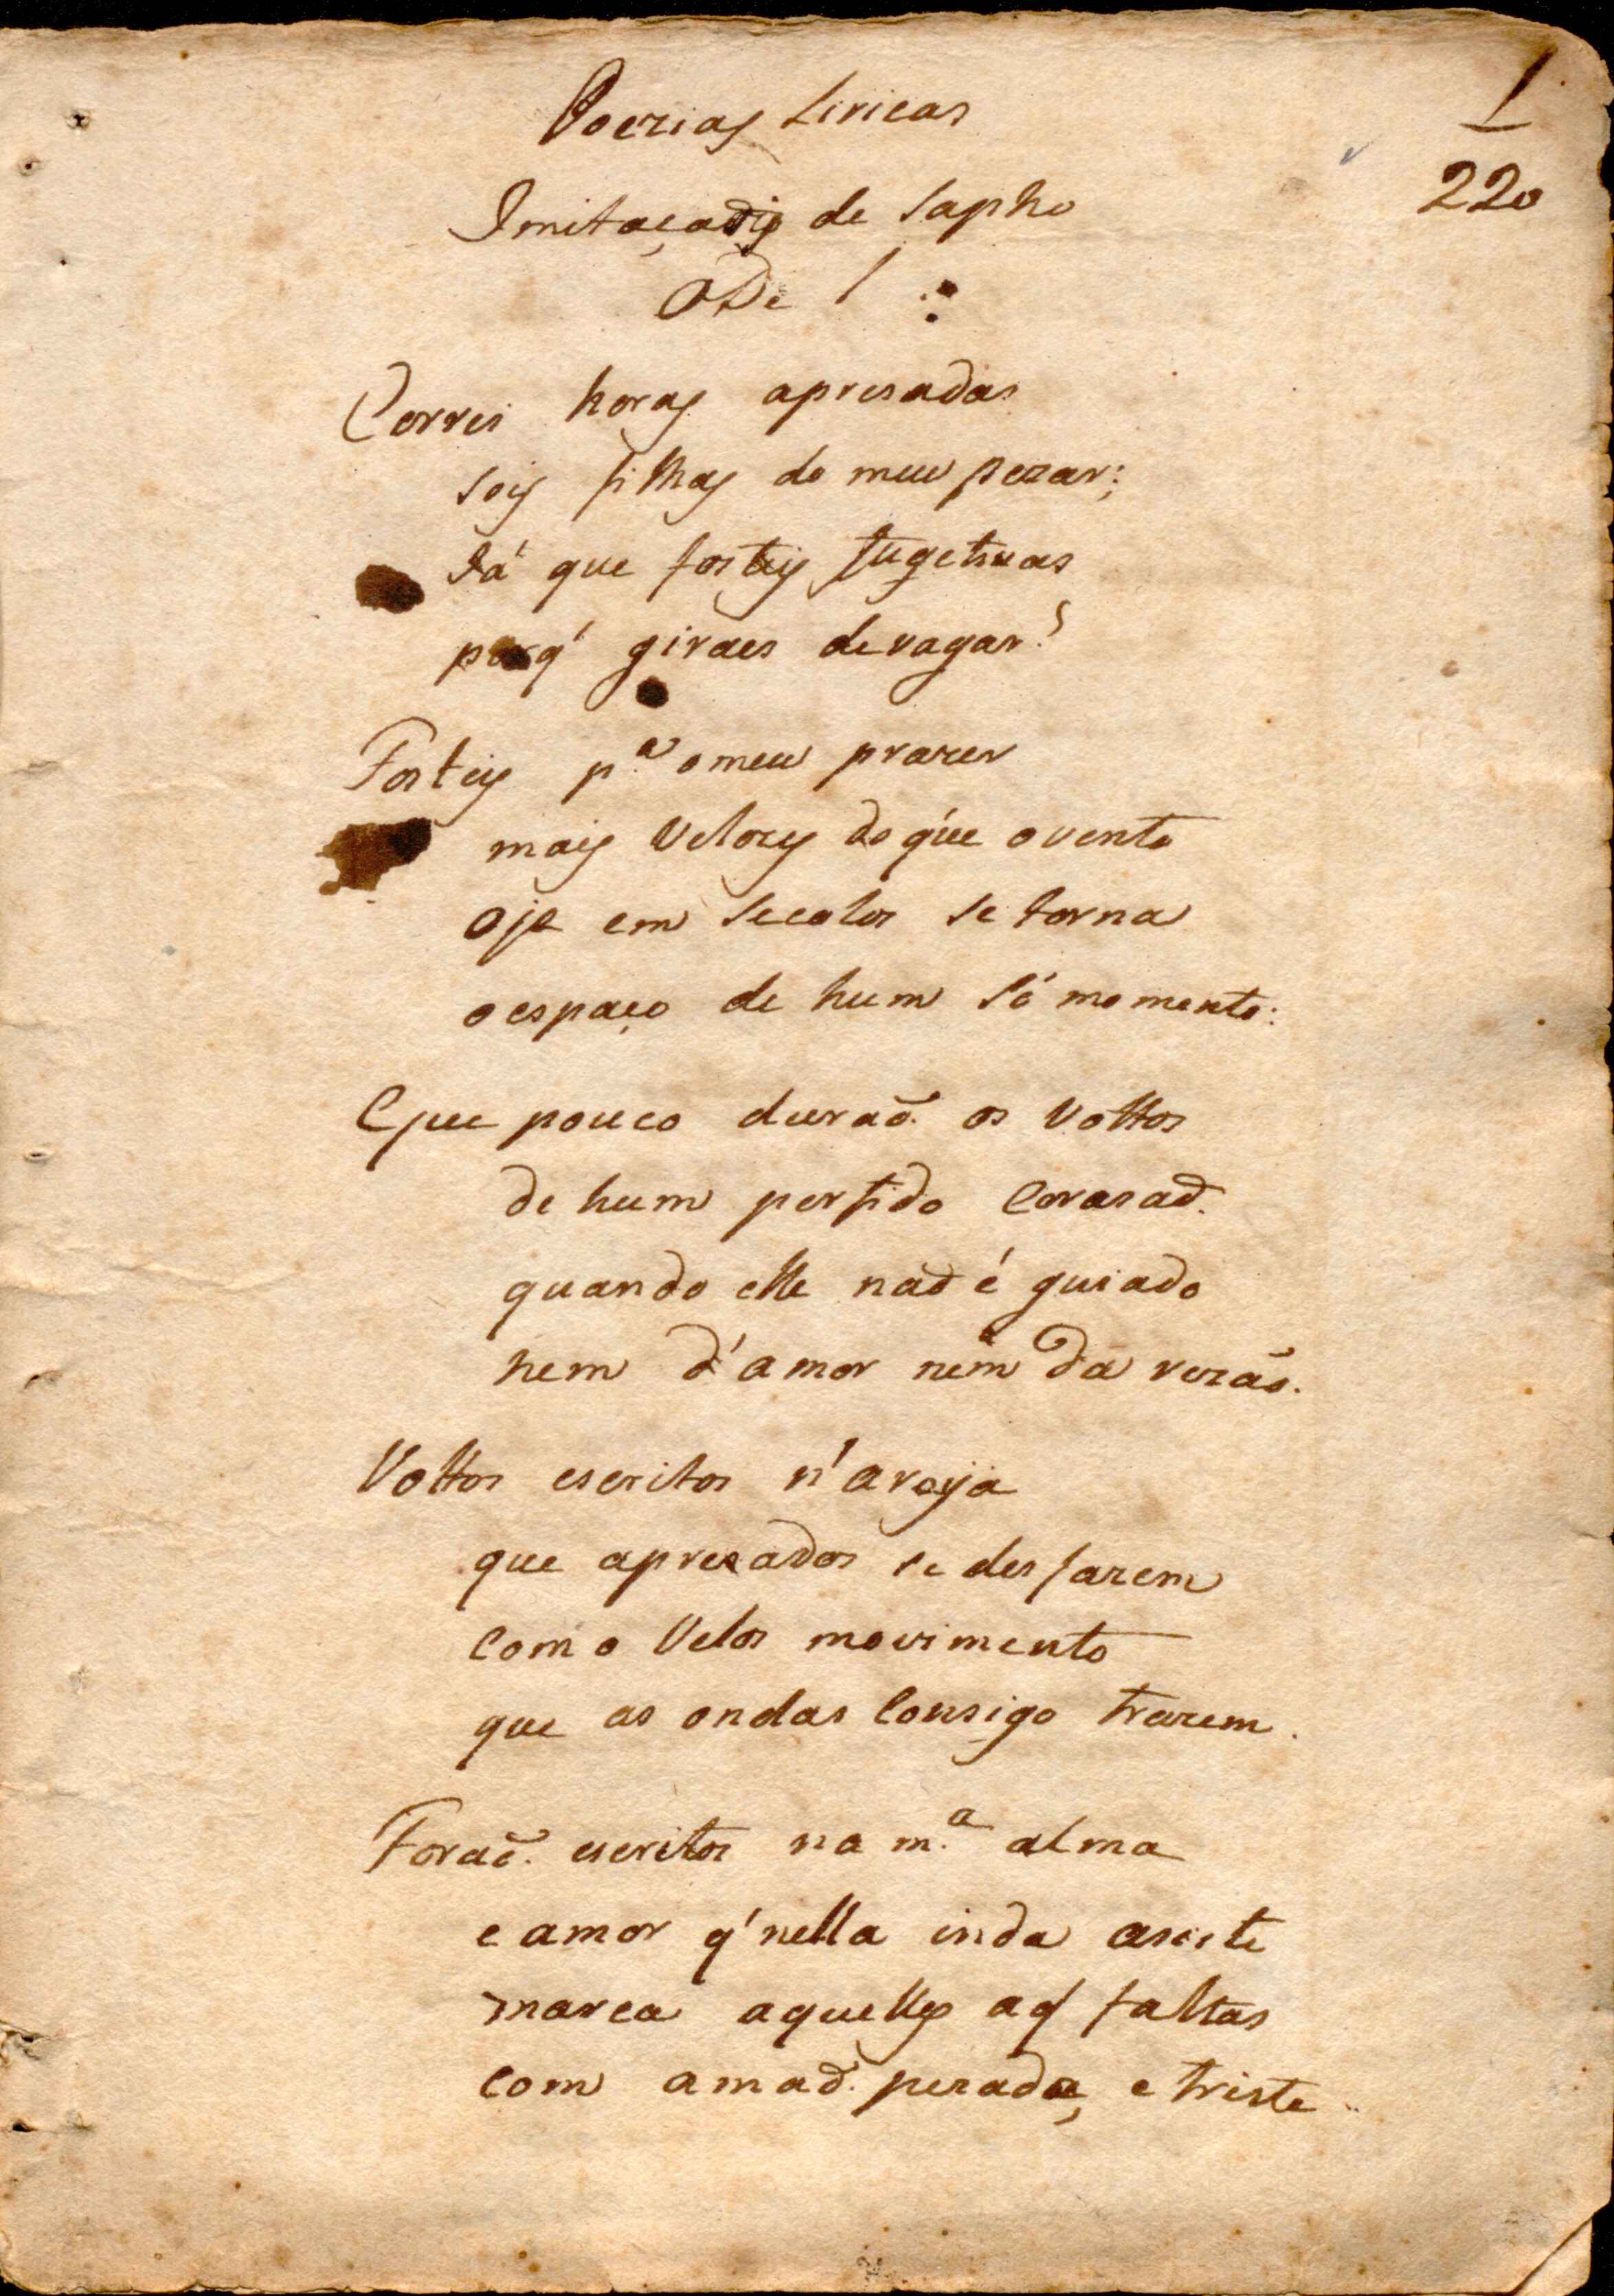 Poezias Liricas
1
220
Imitaçaõis de Sapho
Ode 1
Correi horas apresadas
sois filhas do meu pezar;
Já que fosteis fugetivas
porq' giraes devagar?
Fosteis p.ª o meu prazer
mais velozes do que o vento
oje em secolos se torna
o espaço de hum só momento:
Que pouco duraõ os vottos
de hum perfido corasaõ.
quando elle naõ é guiado
nem d'amor nem da rezaõ.
Vottos escritos n'areja
que apresados se desfazem
com o velos movimento
que as ondas consigo trazem.
Foraõ escritos na m.ª alma
e amor q' nella inda asiste
marca aquelles a q' faltas
com a maõ pezada, e triste